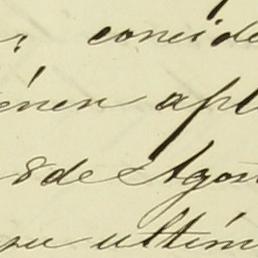 conside
énen apl
8 de Agos
su últim